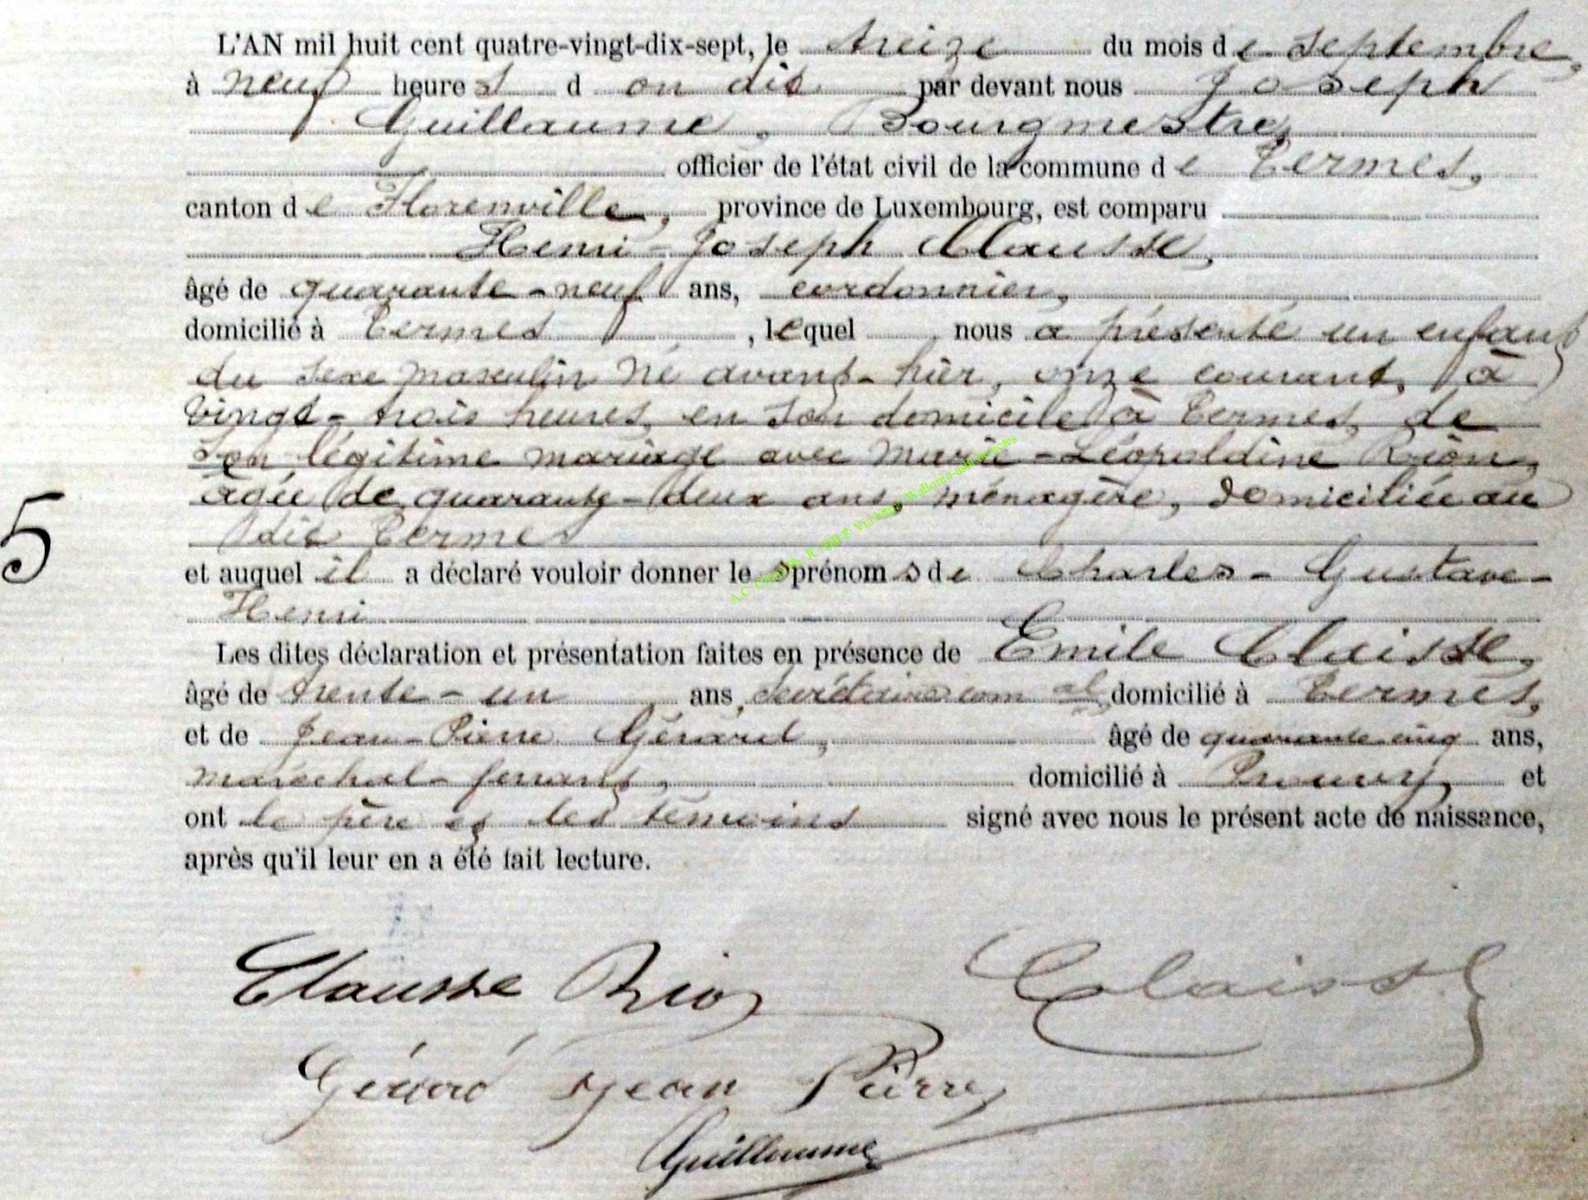 L'AN mil huit cent quatre-vingt-dix-sept, le treize du mois de septembre,
à neuf heures d on dit par devant nous Joseph
Guillaume, Bourgmestre,
officier de l'état civil de la commune de Termes,
canton de Florenville, province de Luxembourg, est comparu
Henri-Joseph Clausse,
âgé de quarante-neuf ans, cordonnier,
domicilié à Termes, lequel nous a présenté un enfant
du sexe masculin né avant-hier, onze courant, à
vingt-trois heures, en son domicile à Termes, de
son légitime mariage avec Marie-Léopoldine Rion,
âgée de quarante-deux ans, ménagère, domiciliée au
dit Termes
5
et auquel il a déclaré vouloir donner les prénoms de Charles-Gustave-
Henri
Les dites déclaration et présentation faites en présence de Emile Claisse,
âgé de trente-un ans, secrétaire com al domicilié à Termes,
et de Jean-Pierre Gérard, âgé de quarante cinq ans,
maréchal-ferrant, domicilié à Prouvy, et
ont le père et les témoins signé avec nous le présent acte de naissance,
après qu'il leur en a été fait lecture.
Clausse Rion Claisse
Gérard Jean Pierre
Guillaume